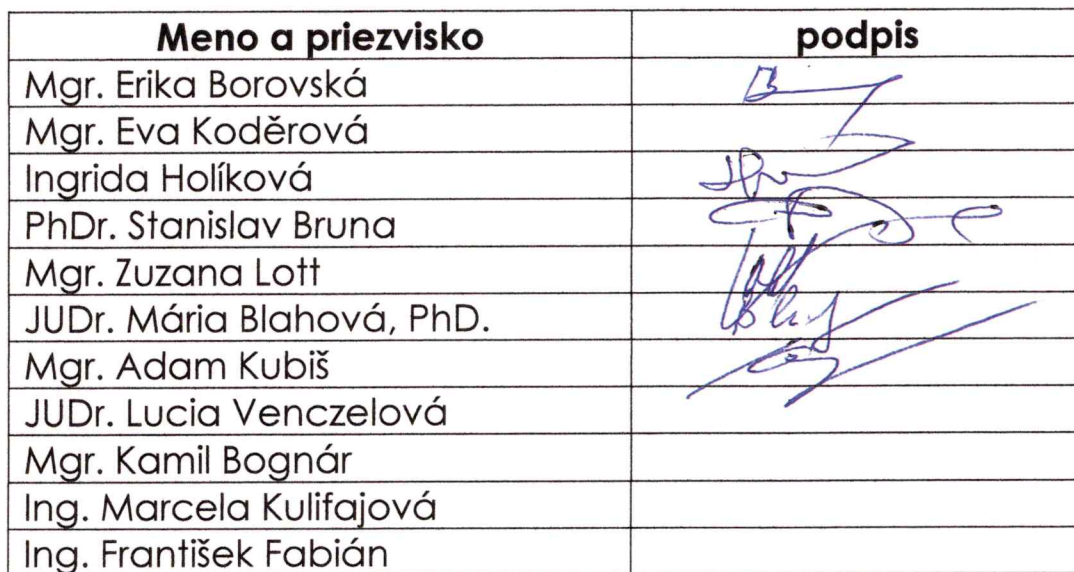 Meno a priezvisko podpis
Mgr. Erika Borovská
Mgr. Eva Koděrová
Ingrida Holíková
PhDr. Stanislav Bruna
Mgr. Zuzana Lott
JUDr. Mária Blahová, PhD.
Mgr. Adam Kubiš
JUDr. Lucia Venczelová
Mgr. Kamil Bognár
Ing. Marcela Kulifajová
Ing. František Fabián